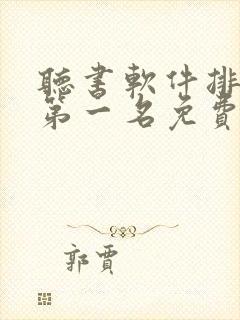 聽書軟件排
第一名免費
郭賈